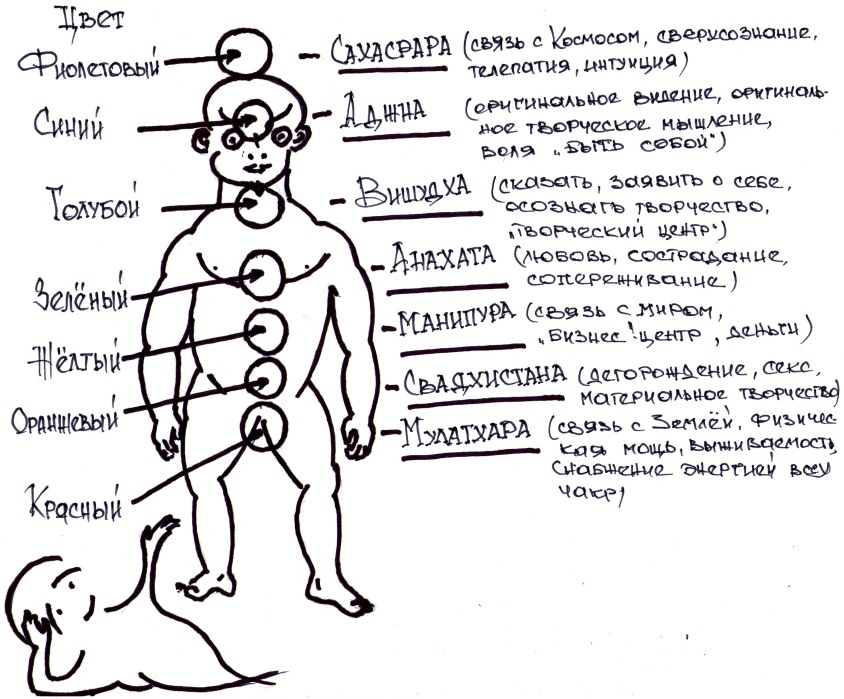 Цвет
Фиолетовый – Сахасрара (связь с Космосом, сверхсознание,
телепатия, интуиция)
Синий – Аджна (оригинальное видение, оригиналь-
ное творческое мышление,
воля „быть собой")
Голубой – Вишудха (сказать, заявить о себе,
осознать творчество,
„творческий центр")
Зелёный – Анахата (любовь, сострадание,
сопереживание)
Жёлтый – Манипура (связь с миром,
„бизнес" центр, деньги)
Оранжевый – Свадхистана (деторождение, секс,
материальное творчество)
Красный – Мулатхара (связь с Землёй, физичес-
кая мощь, выживаемость,
снабжение энергией всех
чакр)